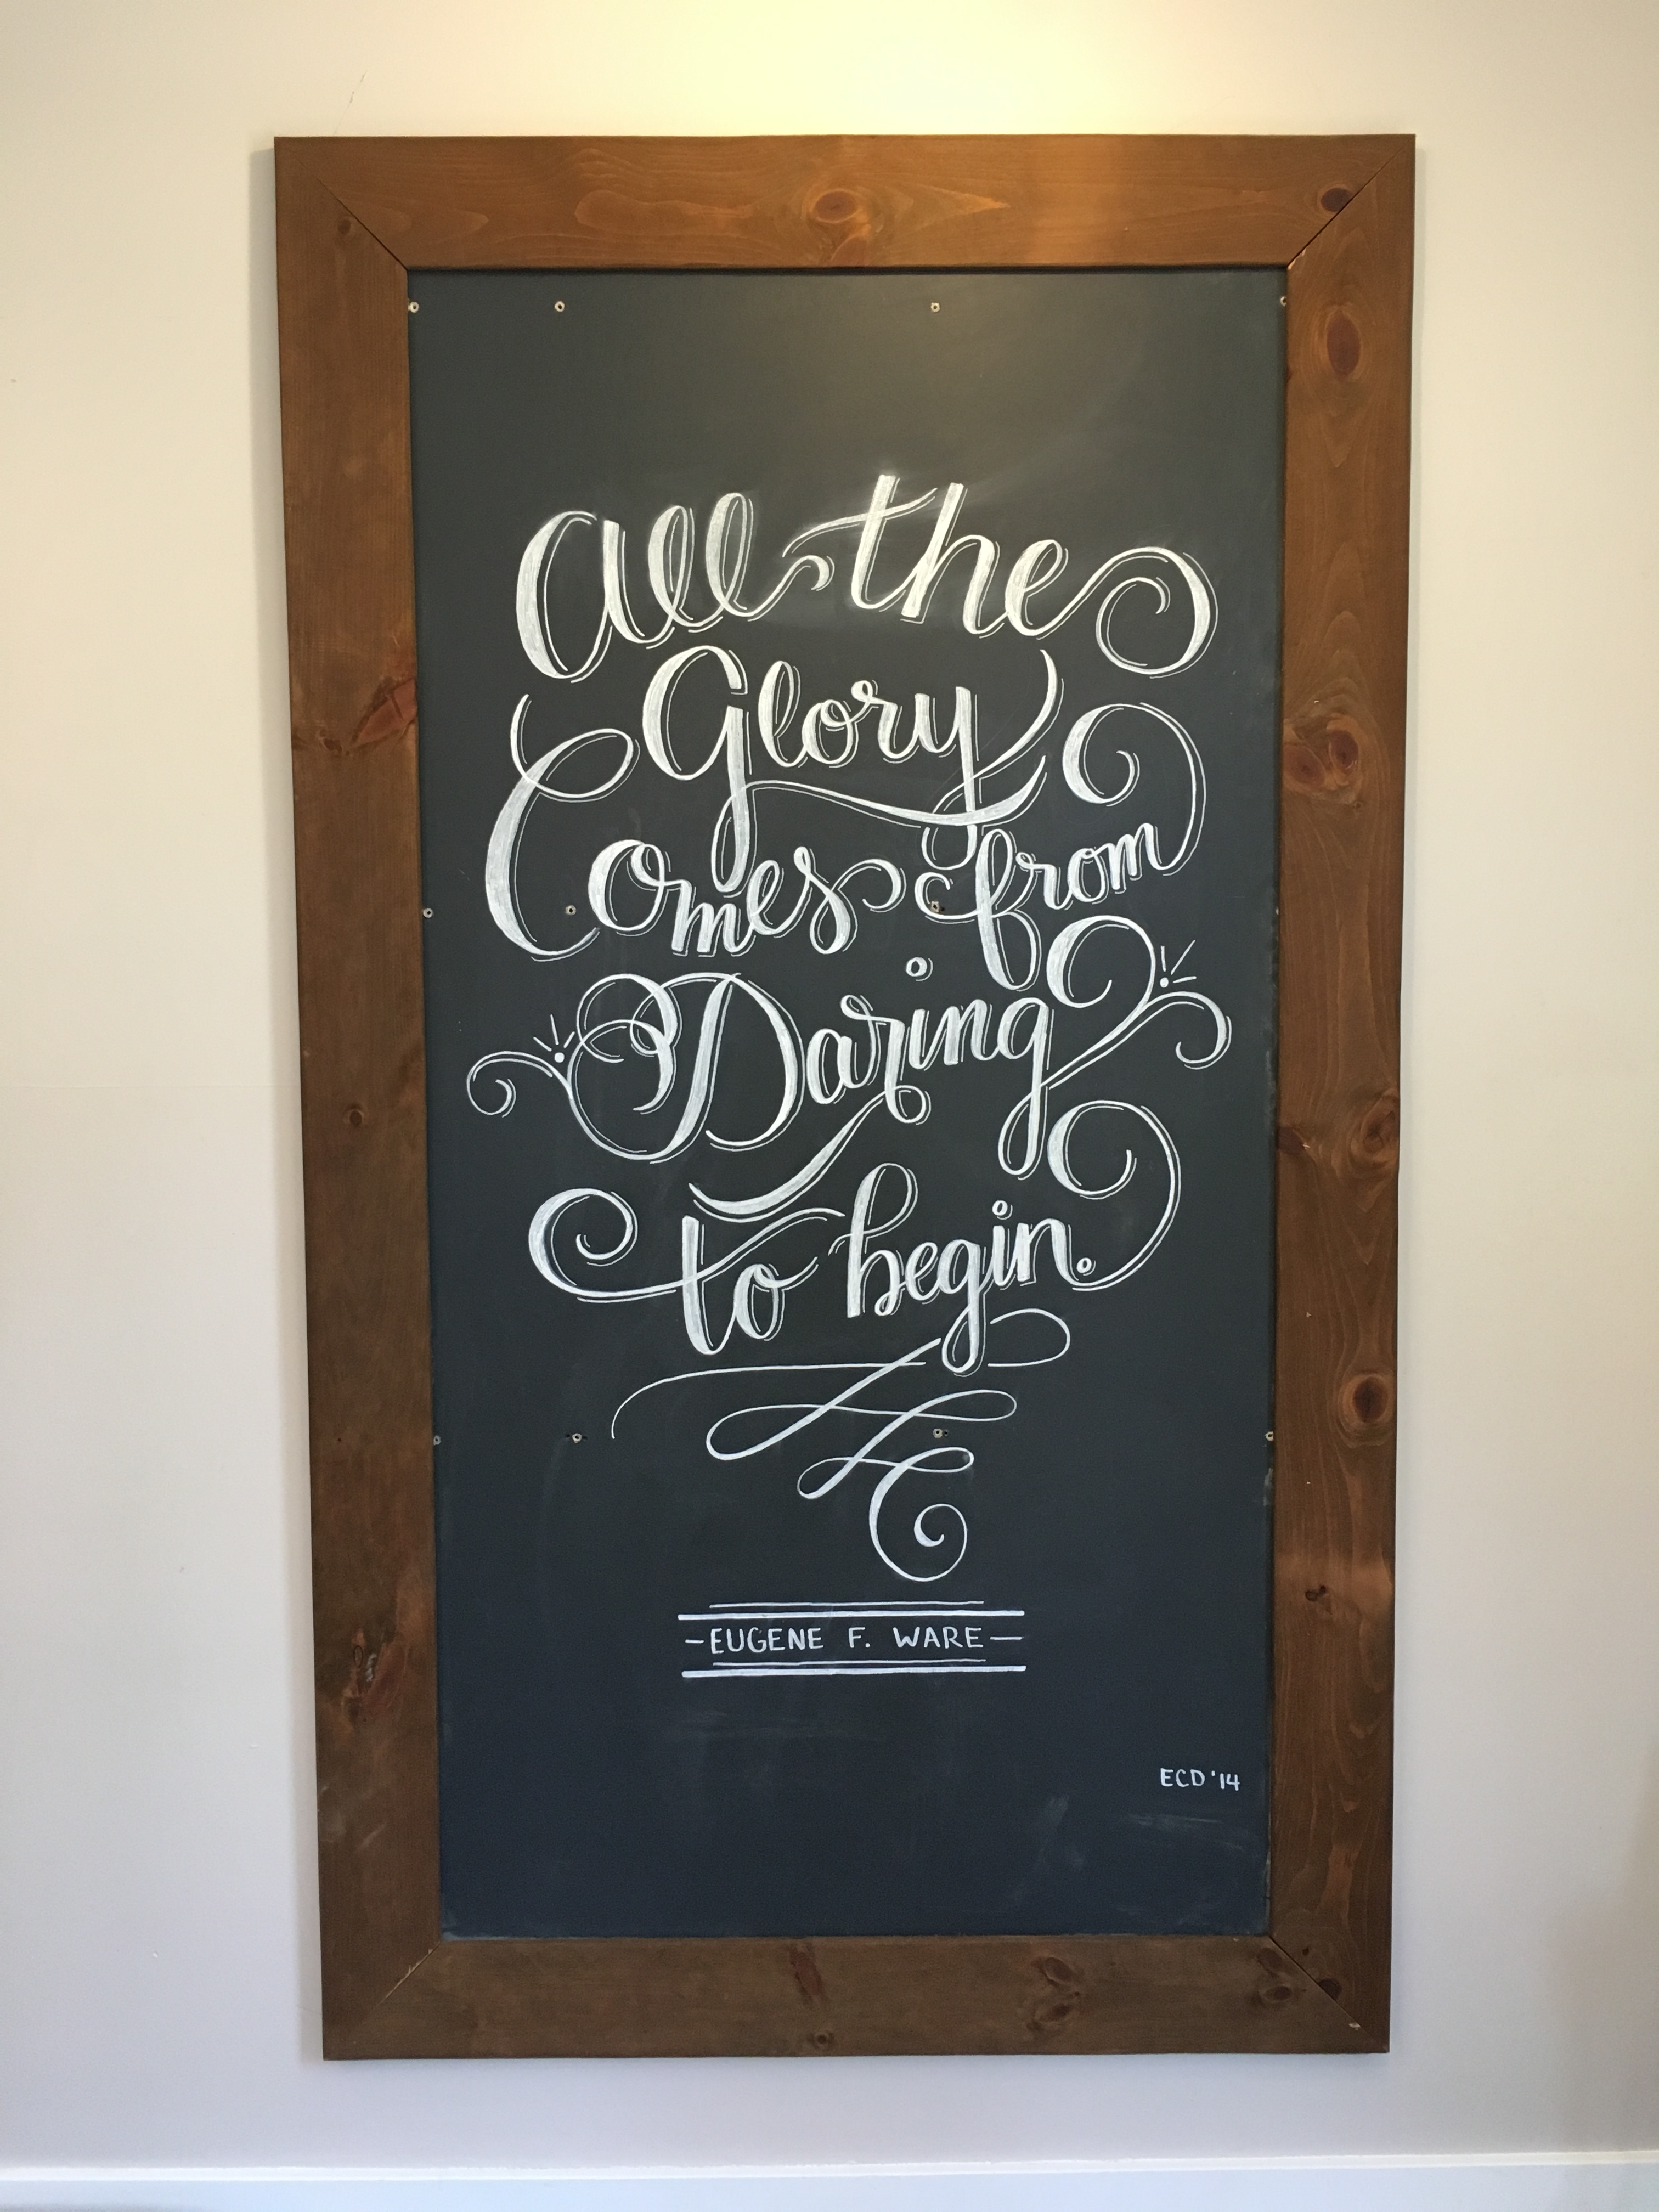 All the
Glory
Comes from
Daring
to begin.
-EUGENE F. WARE-
ECD '14